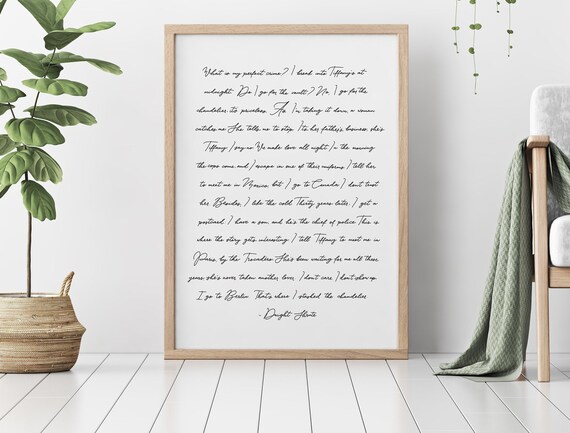 What is my perfect crime? I break into Tiffany's at
midnight. Do I go for the vault? No, I go for the
chandelier, it's priceless. As I'm taking it down, a woman
catches me. She tells me to stop. It's her father's business, she's
Tiffany. I say no. We make love all night. In the morning
the cops come, and I escape in one of their uniforms. I tell her
to meet me in Mexico, but I go to Canada. I don't trust
her. Besides, I like the cold. Thirty years later, I get a
postcard. I have a son, and he's the chief of police. This is
where the story gets interesting. I tell Tiffany to meet me in
Paris, by the Trocadero. She's been waiting for me all these
years, she's never taken another lover. I don't care. I don't show up.
I go to Berlin. That's where I stashed the chandelier.
- Dwight Shrute